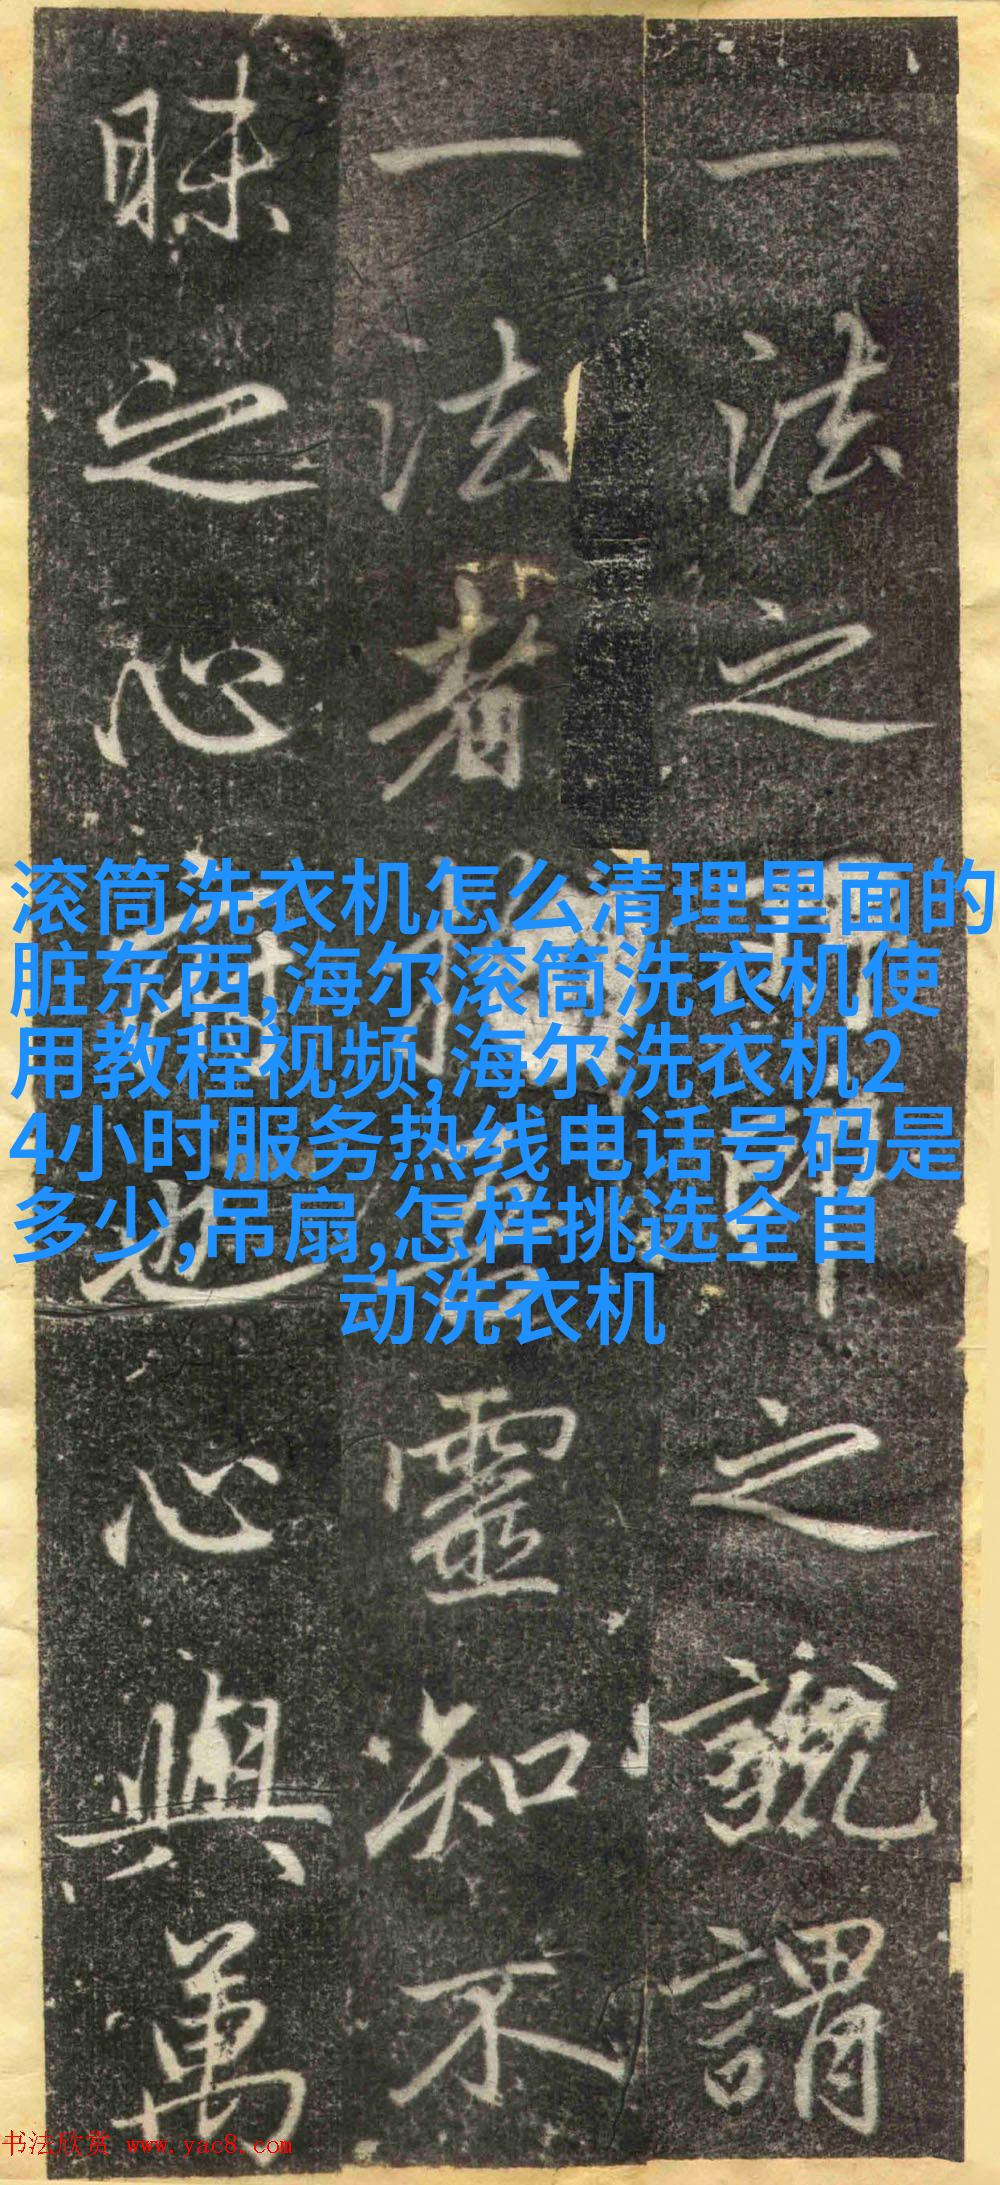 一法之印即之號謂
一法者拈其靈知不
昧之心府也心與萬
滚筒洗衣机怎么清理里面的
脏东西,海尔滚筒洗衣机使
用教程视频,海尔洗衣机2
4小时服务热线电话号码是
多少,吊扇,怎样挑选全自
动洗衣机
书法欣赏 www.yac8.com